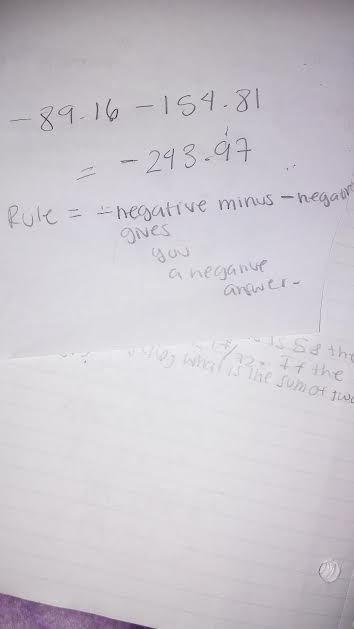 -89.16 -154.81
= -243.97
Rule = -negative minus -negative
gives
you
a negative
answer-
If the
what is the sum of two